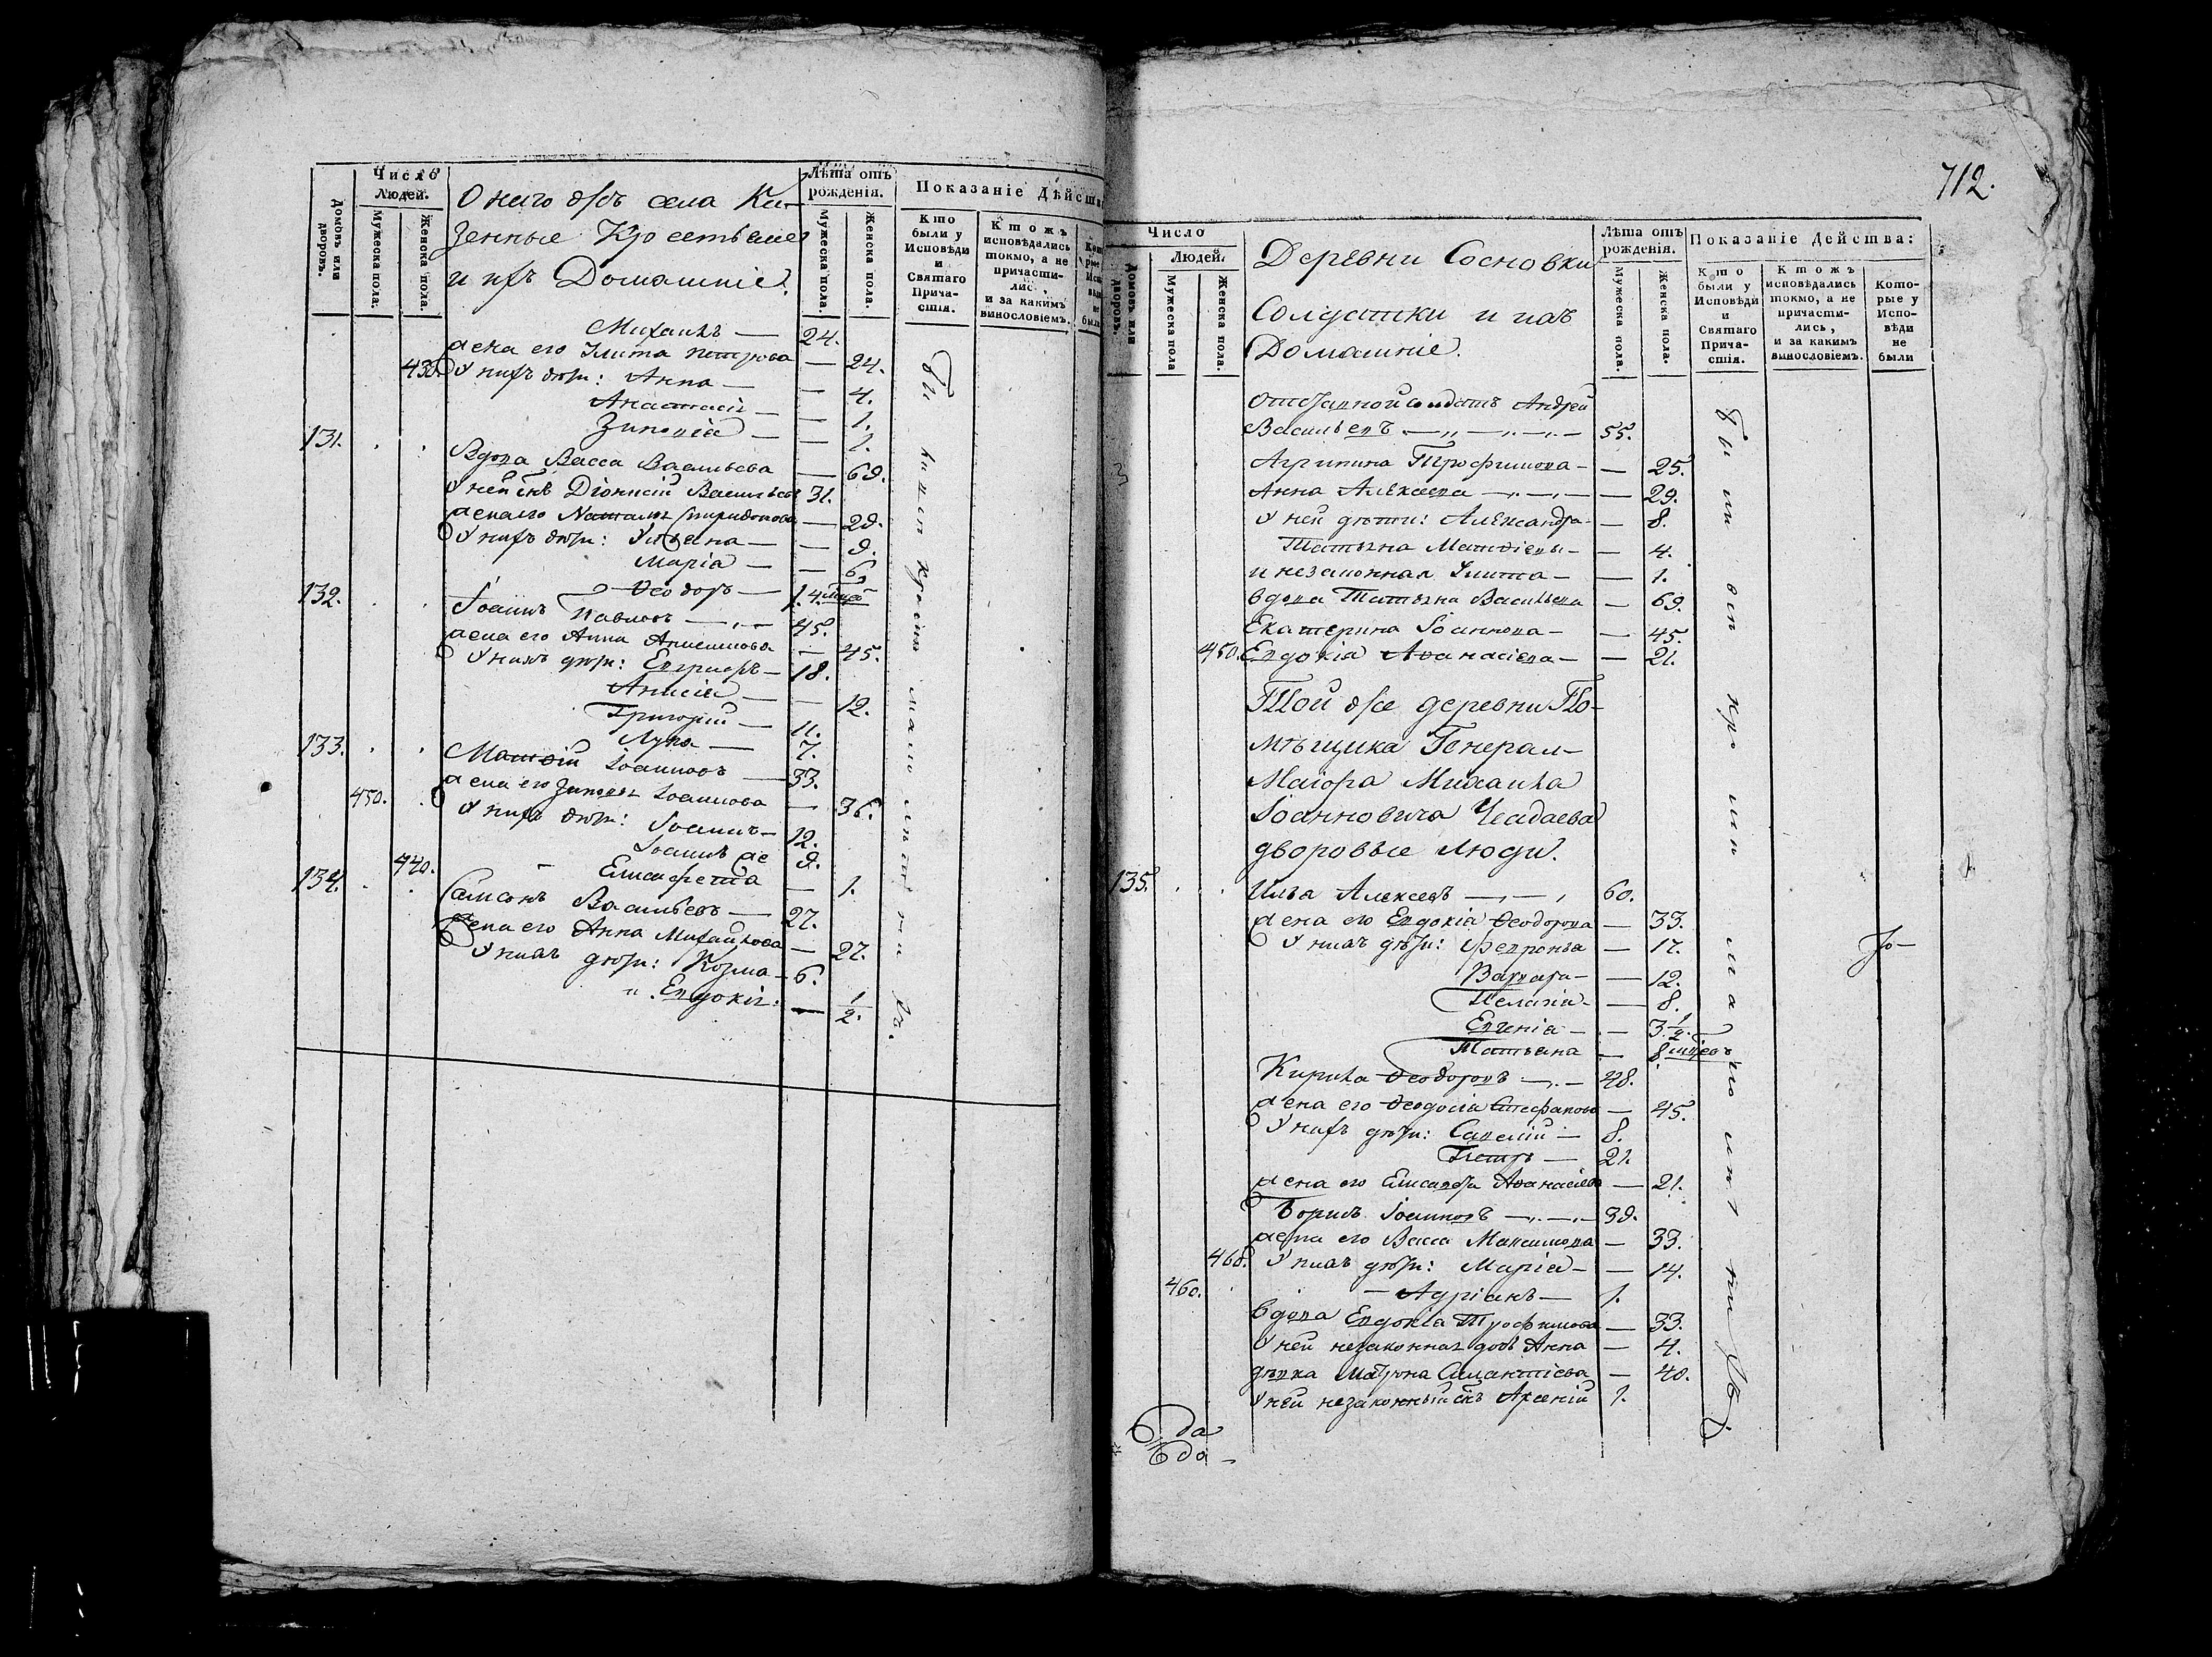 Число
Людей.
Домовъ или дворовъ.
Мужеска пола.
Женска пола.
Онаго жъ села Ка-
зенные Крестьяне
и ихъ Домашніе.
Лѣта отъ рожденія.
Мужеска пола.
Женска пола.
Показаніе Дѣйств
Кто были у Исповѣди и Святаго Прича-
стія.
Ктожъ исповѣдались токмо, а не причасти-
лис, и за какимъ винословіемъ.
Михаилъ — 24.
жена его Улита — 24.
430. У нихъ дѣти: Анна — — 4.
Анастасія — — 1.
Зиновія — — 1.
131. Вдова Васса Васильева — 69.
У ней снъ Діонисій Васильевъ 31.
жена его Наталія Спиридонова — 29.
У нихъ дѣти: Ульяна — — 9.
Марія — — 6.
Ѳеодоръ —
132. Іоаннъ Павловъ — 45.
жена его Анна — 45.
У нихъ дѣти: Евграфъ — 18.
Анисія — — 12.
Григорій — 11.
Лука — 7.
133. Матѳій Іоанновъ — 33.
450. жена его Зиновія Іоаннова — 36.
У нихъ дѣти: Іоаннъ — 12.
Іоаннъ же 9.
440. Елисавета — 1.
134. Самсонъ Васильевъ — 27.
Жена его Анна Михайлова — 27.
У нихъ дѣти: Козма — 6.
и Евдокія. — 1/2.
712.
Число
Людей.
Домовъ или дворовъ.
Мужеска пола
Женска пола.
Деревни Сосновки
Солдатки и ихъ
Домашніе.
Лѣта отъ рожденія.
Мужеска пола.
Женска пола.
Показаніе Действа:
Кто были у Исповѣди и Святаго Прича-
стія.
Ктожъ исповѣдались токмо, а не причасти-
лись, и за какимъ винословіемъ.
Кото-
рые у Испо-
вѣди не были
Отставной солдатъ Андрей
Васильевъ — 55.
Агрипина Трофимова — — 25.
Анна Алексѣева — — 29.
У ней дѣти: Александра — — 8.
Татьяна Матѳіевы — — 4.
и незаконная Улита — — 1.
вдова Татьяна Васильева — 69.
Екатерина Іоаннова — — 45.
450. Евдокія Аѳанасіева — — 21.
Той же деревни По-
мѣщика Генерал-
Маіора Михаила
Іоанновича Чеадаева
дворовые люди.
135. Илья Алексеевъ — 60.
жена его Евдокія Ѳеодорова — 33.
У нихъ дѣти: Февронья — 17.
Варвара — — 12.
Пелагія — — 8.
Евгенія — — 3 1/2.
Татьяна — 8
Кирила Ѳеодоровъ — 48.
жена его Ѳеодосія Стефанова — 45.
У нихъ дѣти: Савелій — 8.
Петръ — 21.
жена его Елисавета Аѳанасіева — 21.
Борисъ Іоанновъ — 39.
жена его Васса Максимова — 33.
460. У нихъ дѣти: Марія — — 14.
460. — Адріанъ — 1.
вдова Евдокія Трофимова — 33.
У ней незаконная дочь Анна — 4.
дѣвка Матрона — 40.
У ней незаконный снъ Арсеній 1.